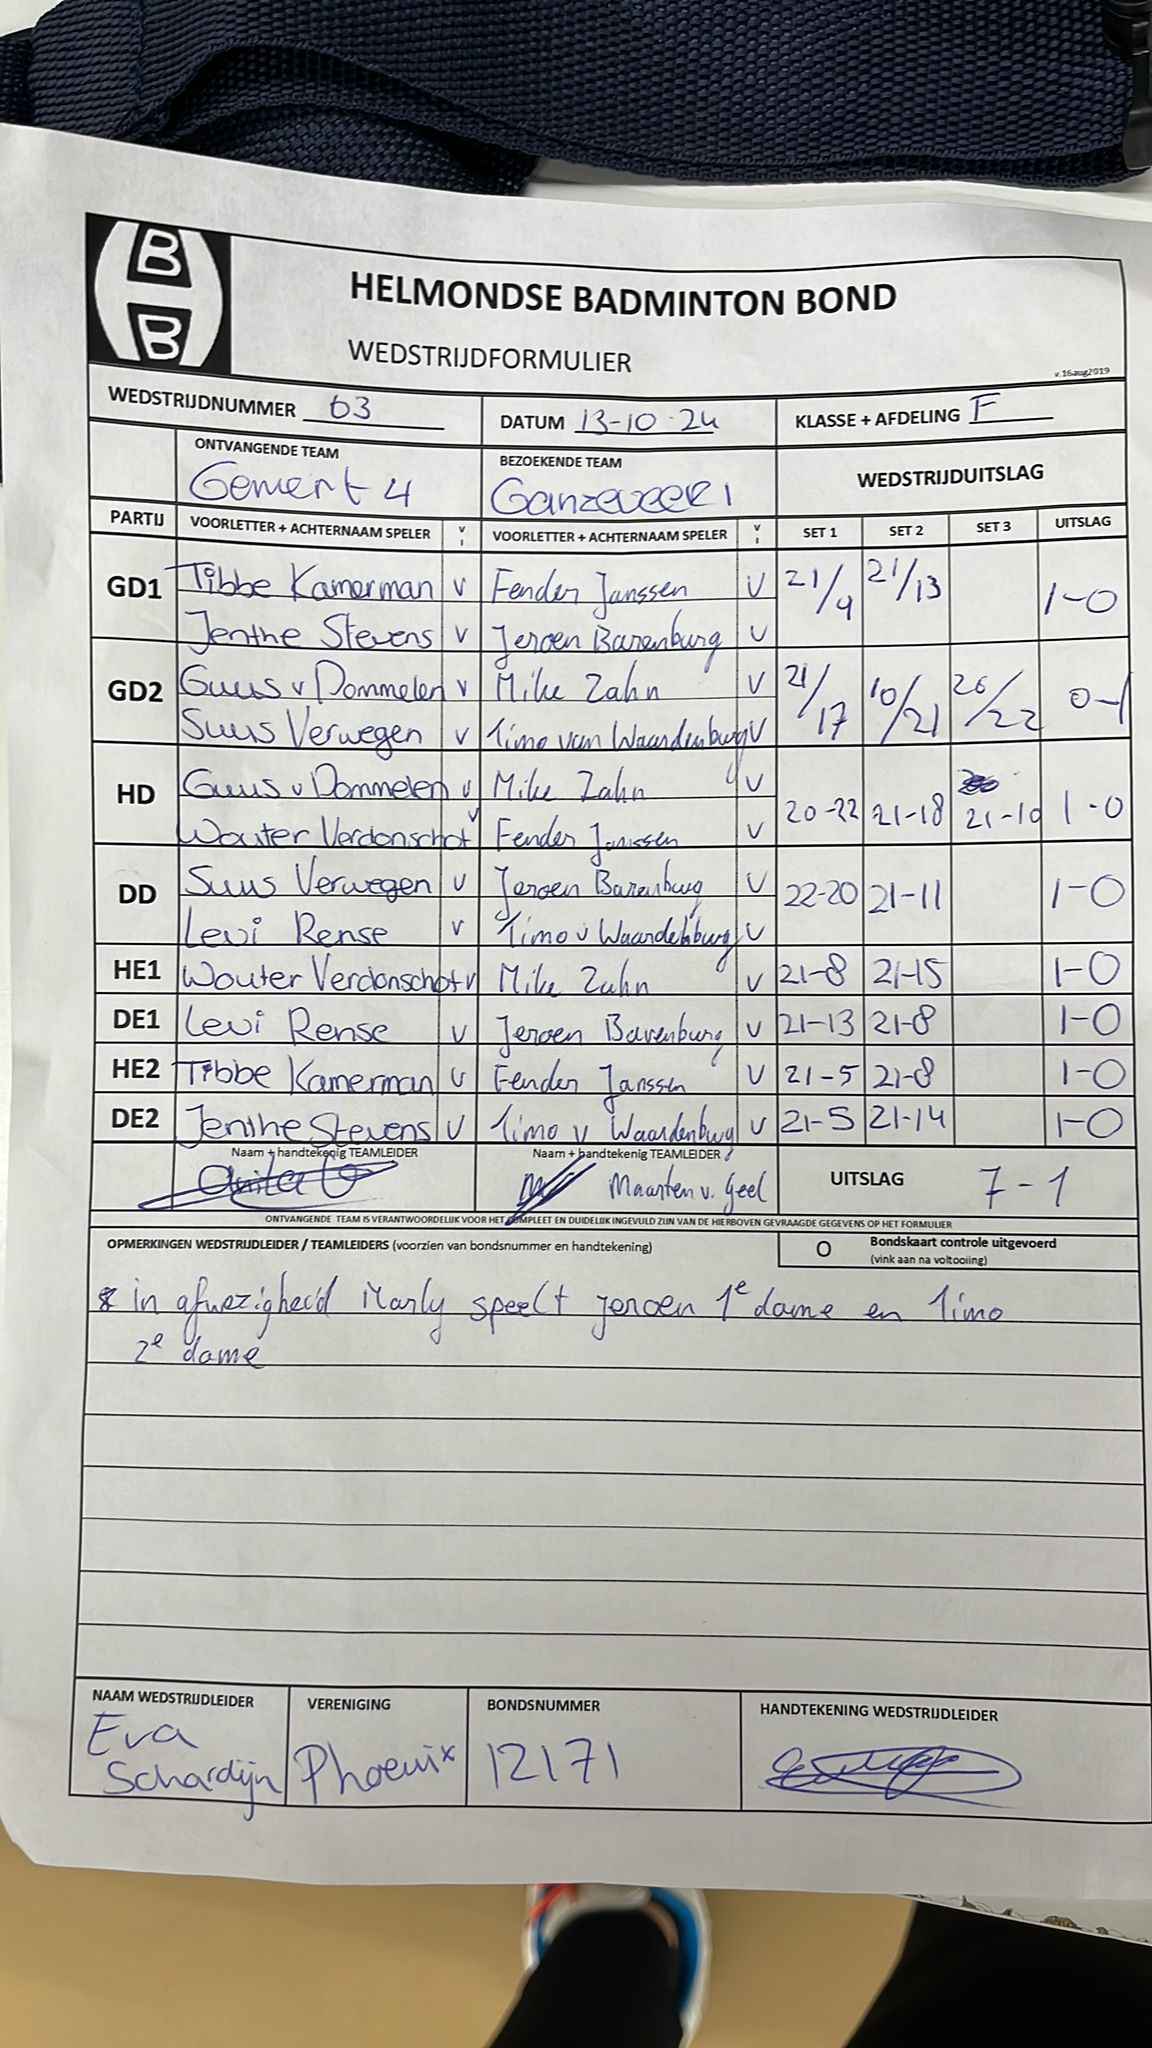 B
B
HELMONDSE BADMINTON BOND
WEDSTRIJDFORMULIER
v.16aug2019
WEDSTRIJDNUMMER 63
DATUM 13-10-24
KLASSE + AFDELING F
ONTVANGENDE TEAM
BEZOEKENDE TEAM
WEDSTRIJDUITSLAG
Gemert 4
Ganzeveer 1
PARTIJ VOORLETTER + ACHTERNAAM SPELER V I VOORLETTER + ACHTERNAAM SPELER V I SET 1 SET 2 SET 3 UITSLAG
GD1 Tibbe Kamerman v Fender Janssen v 21/9 21/13 1-0
Jenthe Stevens v Jeroen Barenburg v
GD2 Guus v Dommelen v Mike Zahn v 21/17 10/21 20/22 0-1
Suus Verwegen v Timo van Waardenburg v
HD Guus v Dommelen v Mike Zahn v 20-22 21-18 21-10 1-0
Wouter Verdonschot v Fender Janssen v
DD Suus Verwegen v Jeroen Barenburg v 22-20 21-11 1-0
Levi Rense v Timo v Waardenburg v
HE1 Wouter Verdonschot v Mike Zahn v 21-8 21-15 1-0
DE1 Levi Rense v Jeroen Barenburg v 21-13 21-8 1-0
HE2 Tibbe Kamerman v Fender Janssen v 21-5 21-8 1-0
DE2 Jenthe Stevens v Timo v Waardenburg v 21-5 21-14 1-0
Naam + handtekenig TEAMLEIDER
Naam + handtekenig TEAMLEIDER
Maarten v. Geel
UITSLAG 7-1
ONTVANGENDE TEAM IS VERANTWOORDELIJK VOOR HET COMPLEET EN DUIDELIJK INGEVULD ZIJN VAN DE HIERBOVEN GEVRAAGDE GEGEVENS OP HET FORMULIER
OPMERKINGEN WEDSTRIJDLEIDER / TEAMLEIDERS (voorzien van bondsnummer en handtekening)
O Bondskaart controle uitgevoerd
(vink aan na voltooiing)
* in afwezigheid Marly speelt jeroen 1e dame en Timo
2e dame
NAAM WEDSTRIJDLEIDER
VERENIGING
BONDSNUMMER
HANDTEKENING WEDSTRIJDLEIDER
Eva
Schardijn
Phoenix
12171